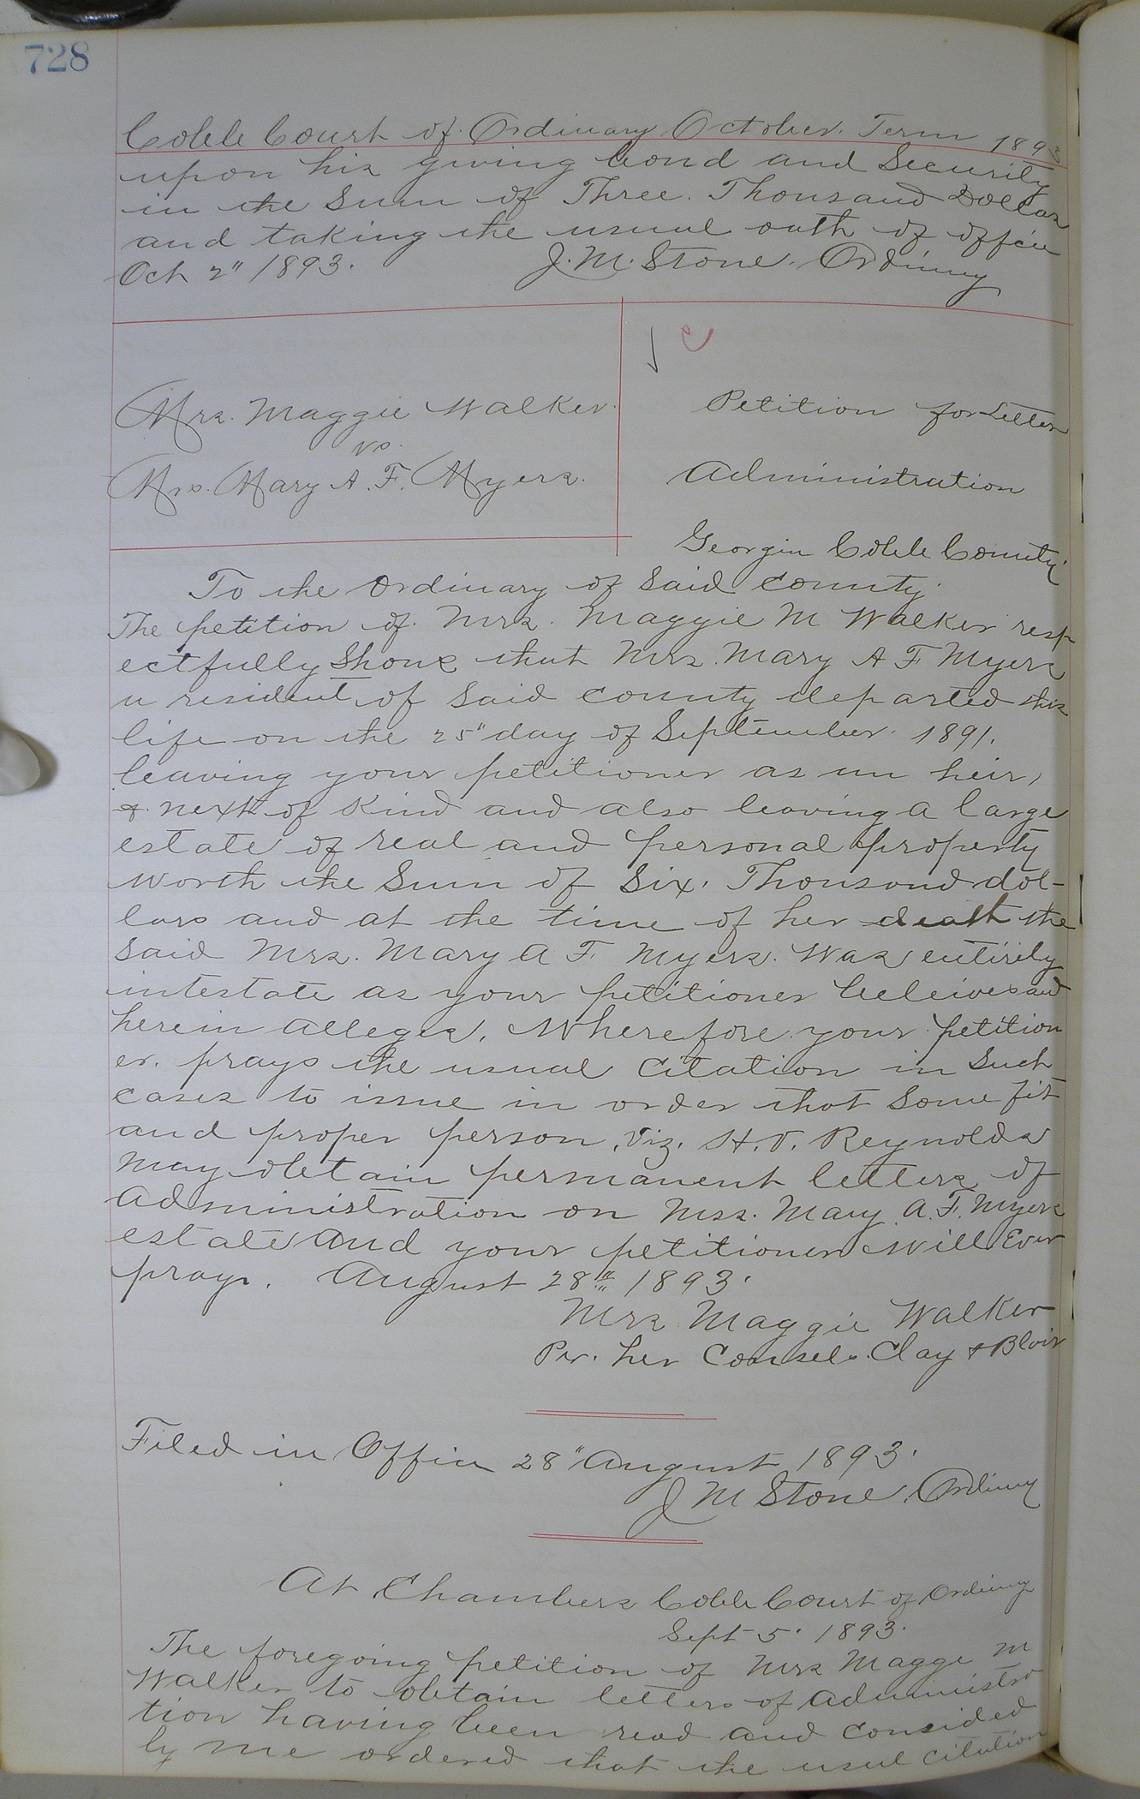 728
Cobb Court of Ordinary October Term 1893
upon his giving bond and Security
in the Sum of Three Thousand Dollars
and taking the usual oath of office
Oct 2" 1893. J. M. Stone. Ordinary
Mrs. Maggie Walker.
vs.
Mrs. Mary A. F. Myers.
Petition for Letters
Administration
Georgia Cobb County.
To the Ordinary of Said County.
The petition of Mrs. Maggie M Walker resp
ectfully Shows that Mrs. Mary A F Myers
a resident of Said County departed this
life on the 25" day of September 1891.
leaving your petitioner as an heir,
& next of Kind and also leaving a large
estate of real and personal property
worth the Sum of Six Thousand dol-
lars and at the time of her death the
Said Mrs. Mary A F Myers. Was entirely
intestate as your petitioner beleives and
herein alleges. Wherefore your petition
er. prays the usual Citation in Such
cases to issue in order that Some fit
and proper person, Viz. H. V. Reynolds
may obtain permanent letters of
Administration on Mrs. Mary A. F. Myers
estate And your petitioner Will Ever
pray. August 28" 1893.
Mrs Maggie Walker
Per. her Counsel. Clay & Blair
Filed in Office 28" August 1893.
J M Stone, Ordinary
At Chambers Cobb Court of Ordinary
Sept 5. 1893.
The foregoing petition of Mrs Maggie M
Walker to obtain letters of Administra
tion having been read and Consided
by me ordered that the usual citation